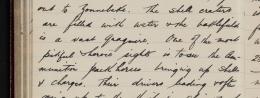 out to Zonnebeke. The shell craters
are filled with water & the battlefield
is a vast quagmire. One of the most
pitiful & heroic sights is to see the am-
munition pack horses bringing up shells
& charges, their drivers leading & oft